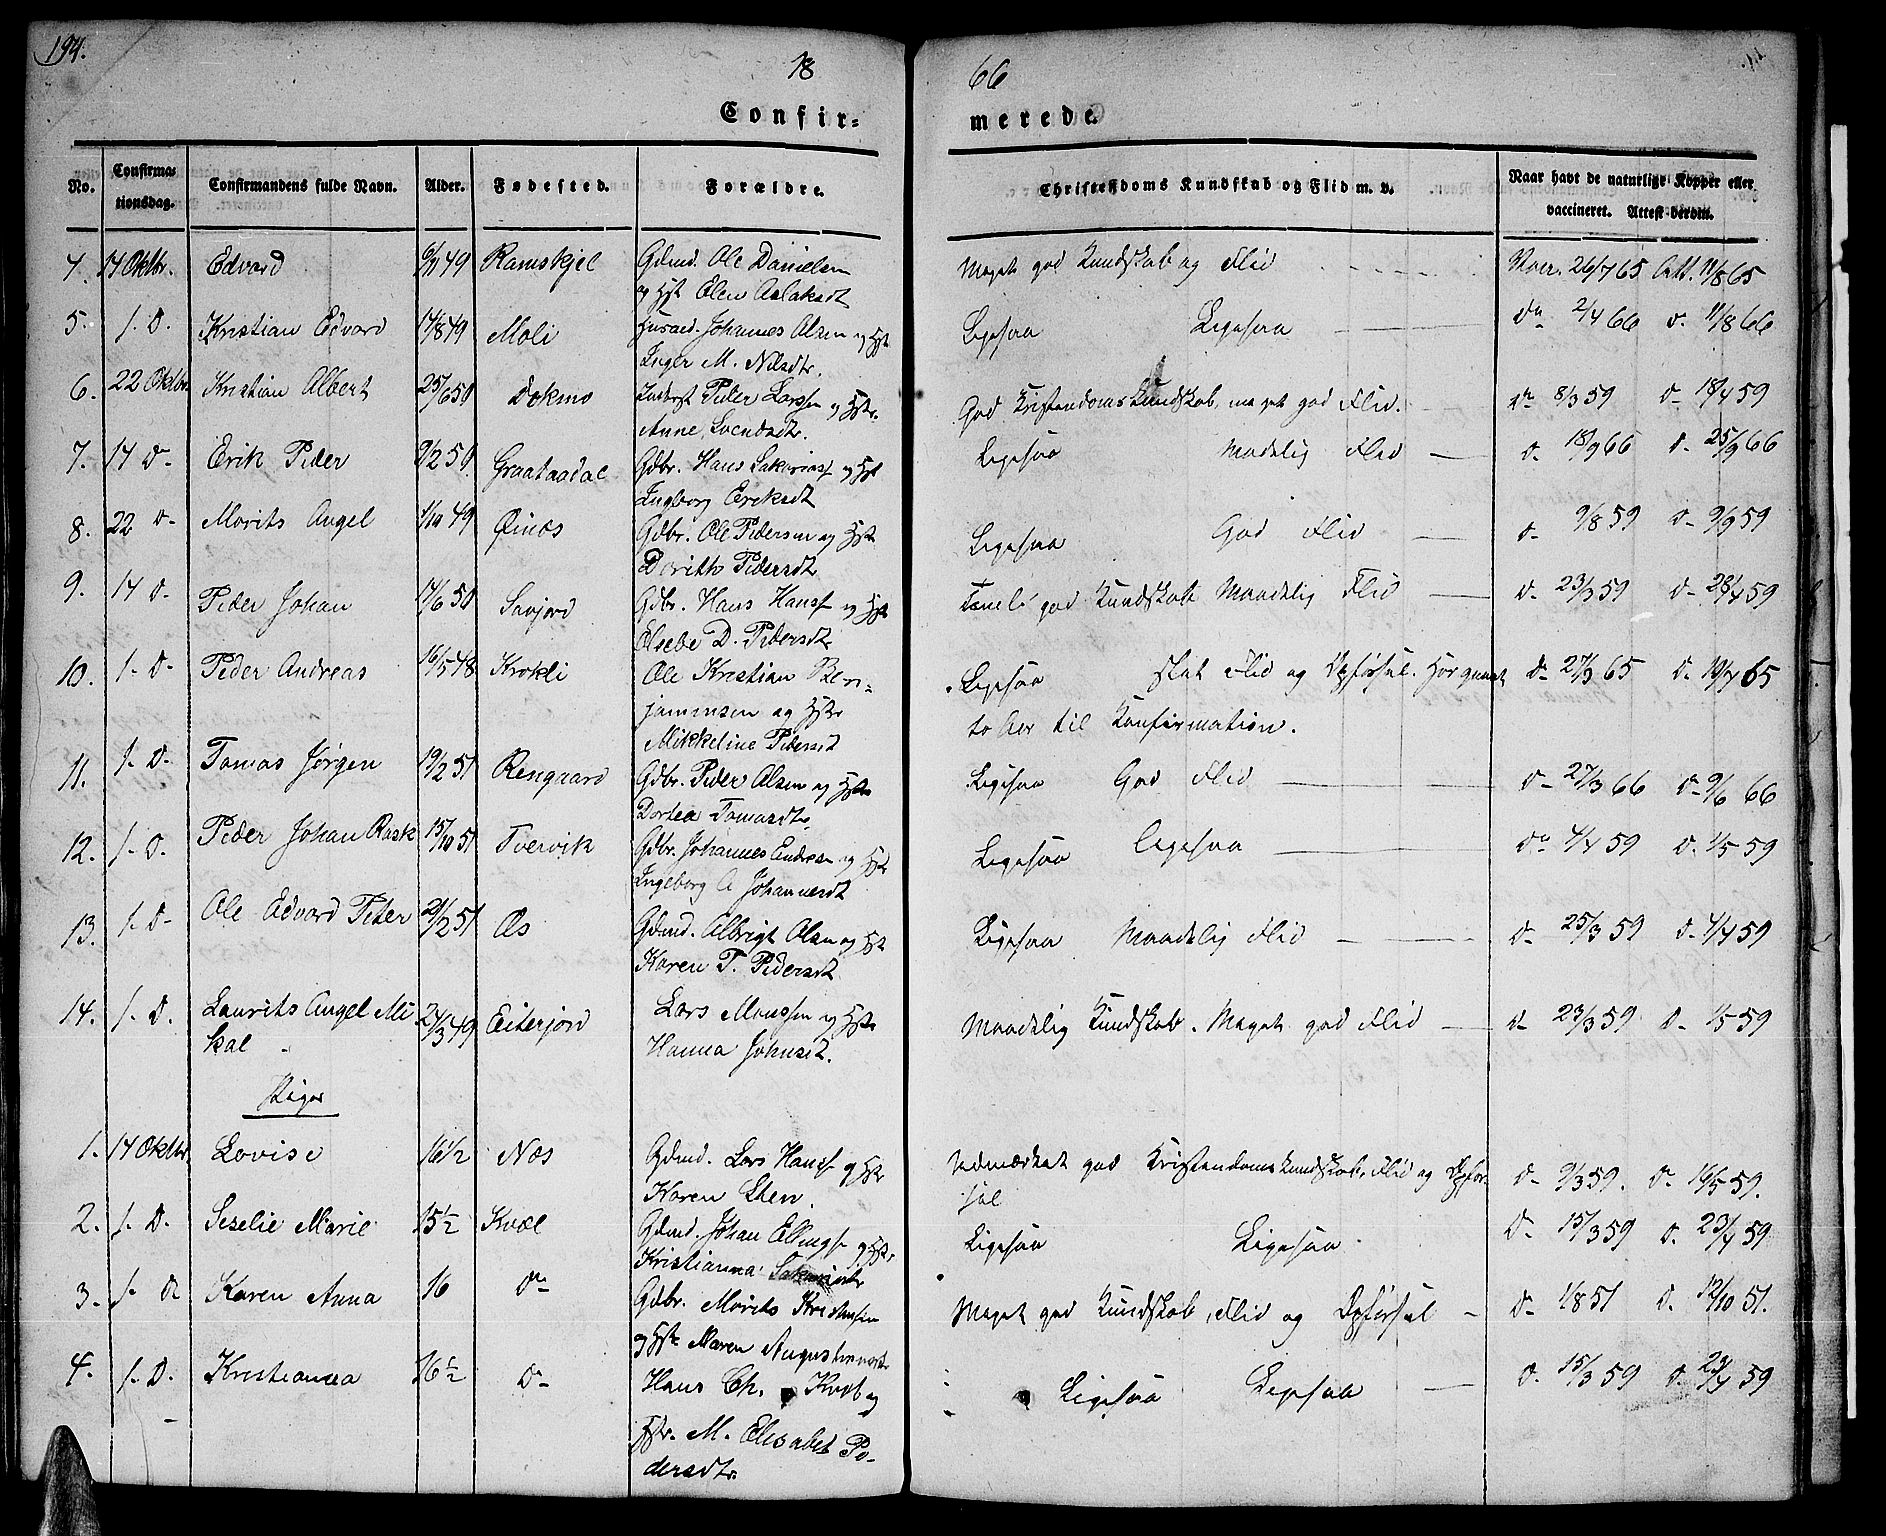 194.
18
66
Confir-
merede.
No.
Confirma-
tionsdag.
Confirmandens fulde Navn.
Alder.
Fødested.
Forældre.
Christendoms Kundskab og Flid m. v.
Naar havt de naturlige Kopper eller
vaccineret. Attest derom.
4. 14 Oktbr. Edvard 6/11 49 Ramskjel Gdmd. Ole Danielsen
og Hst Elen Aslaksdt
Meget god Kundskab og Flid Vacc. 26/7 65 Att. 11/8 65
5. s. D. Kristian Edvard 14/8 49 Moli Husmd. Johannes Olsen og Hst
Inger M. Nilsdtr.
Ligesaa Ligesaa Do 2/4 66 D. 11/8 66
6. 22 Oktbr. Kristian Albert 25/6 50 Dokmo Inderst Peder Larssn og Hstr.
Anne Svendsdtr.
God Kristendomskundskab, meget god Flid. Do 8/3 59 D- 18/4 59
7. 14 D- Erik Peder 9/2 50 Graataadal Gdbr. Hans Sakariass og Hst
Ingborg Eriksdt
Ligesaa Maadelig Flid D- 18/9 66 D. 25/9 66
8. 22 D- Morits Angel 1/10 49 Øinæs Gdbr. Ole Pedersen og Hst
Dorith Pedersdt
Ligesaa God Flid D- 9/8 59 D- 9/9 59
9. 14 D- Peder Johan 17/6 50 Savjord Gdbr. Hans Hanss og Hst
Elsebe D. Pedersdt.
Temel. god Kundskab Maadelig Flid D- 23/3 59 D- 23/4 59
10. s. D- Peder Andreas 16/5 48 Krokli Ole Kristian Ben-
jaminsen og Hstr
Mikkeline Pedersdt
Ligesaa slet Flid og Opførsel. Har gaaet D- 27/3 65 D. 19/7 65
to Aar til Konfirmation.
11. s. D- Tomas Jørgen 19/2 51 Rengaard Gdbr. Peder Olsen og Hstr
Dortea Tomasdtr.
Ligesaa God Flid D- 27/3 66 D- 9/6 66
12. s. D. Peder Johan Rask 15/10 51 Tvervik Gdbr. Johannes Andress og Hst
Ingeborg A Johannesdt
Ligesaa Ligesaa Do 4/4 59 D. 1/5 59
13. s. D- Ole Edvard Peter 21/2 51 Æs Gdmd. Albrigt Olsen og Hst
Karen T. Pedersdt
Ligesaa Maadelig Flid D- 25/3 59 D- 4/4 59
14. s. D. Laurits Angel Mi- 24/3 49 Eiterjord Lars Monssen og Hstr
kal Hanna Johnsdt.
Maadelig Kundskab. Meget god Flid D- 23/3 59 D- 1/5 59
Piger
1. 14 Oktbr. Lovise 16 1/2 Næs Gdmd. Lars Hanss og Hstr
Karen Sten.
Udmærket god Kristendomskundskab, Flid og Opfør- D- 9/3 59. D- 16/5 59.
sel
2. s. D. Seselie Marie 15 1/2 Kvæl Gdmd. Johan Ellings og Hstr
Kristianna Sakariasdtr
Ligesaa Ligesaa D- 15/3 59 D. 23/4 59
3. s. D Karen Anna 16 Do Gdbr. Morits Kristensen
og Hstr Maren Augustinusdtr
Meget god Kundskab, Flid og Opførsel D- 1/8 51 D. 12/10 51.
4. s. D. Kristianna 16 1/2 D- Hans Ch. Kvæl og
Hstr. M. Elisabet Pe-
dersdtr.
Ligesaa Ligesaa D. 15/3 59 D. 23/4 59